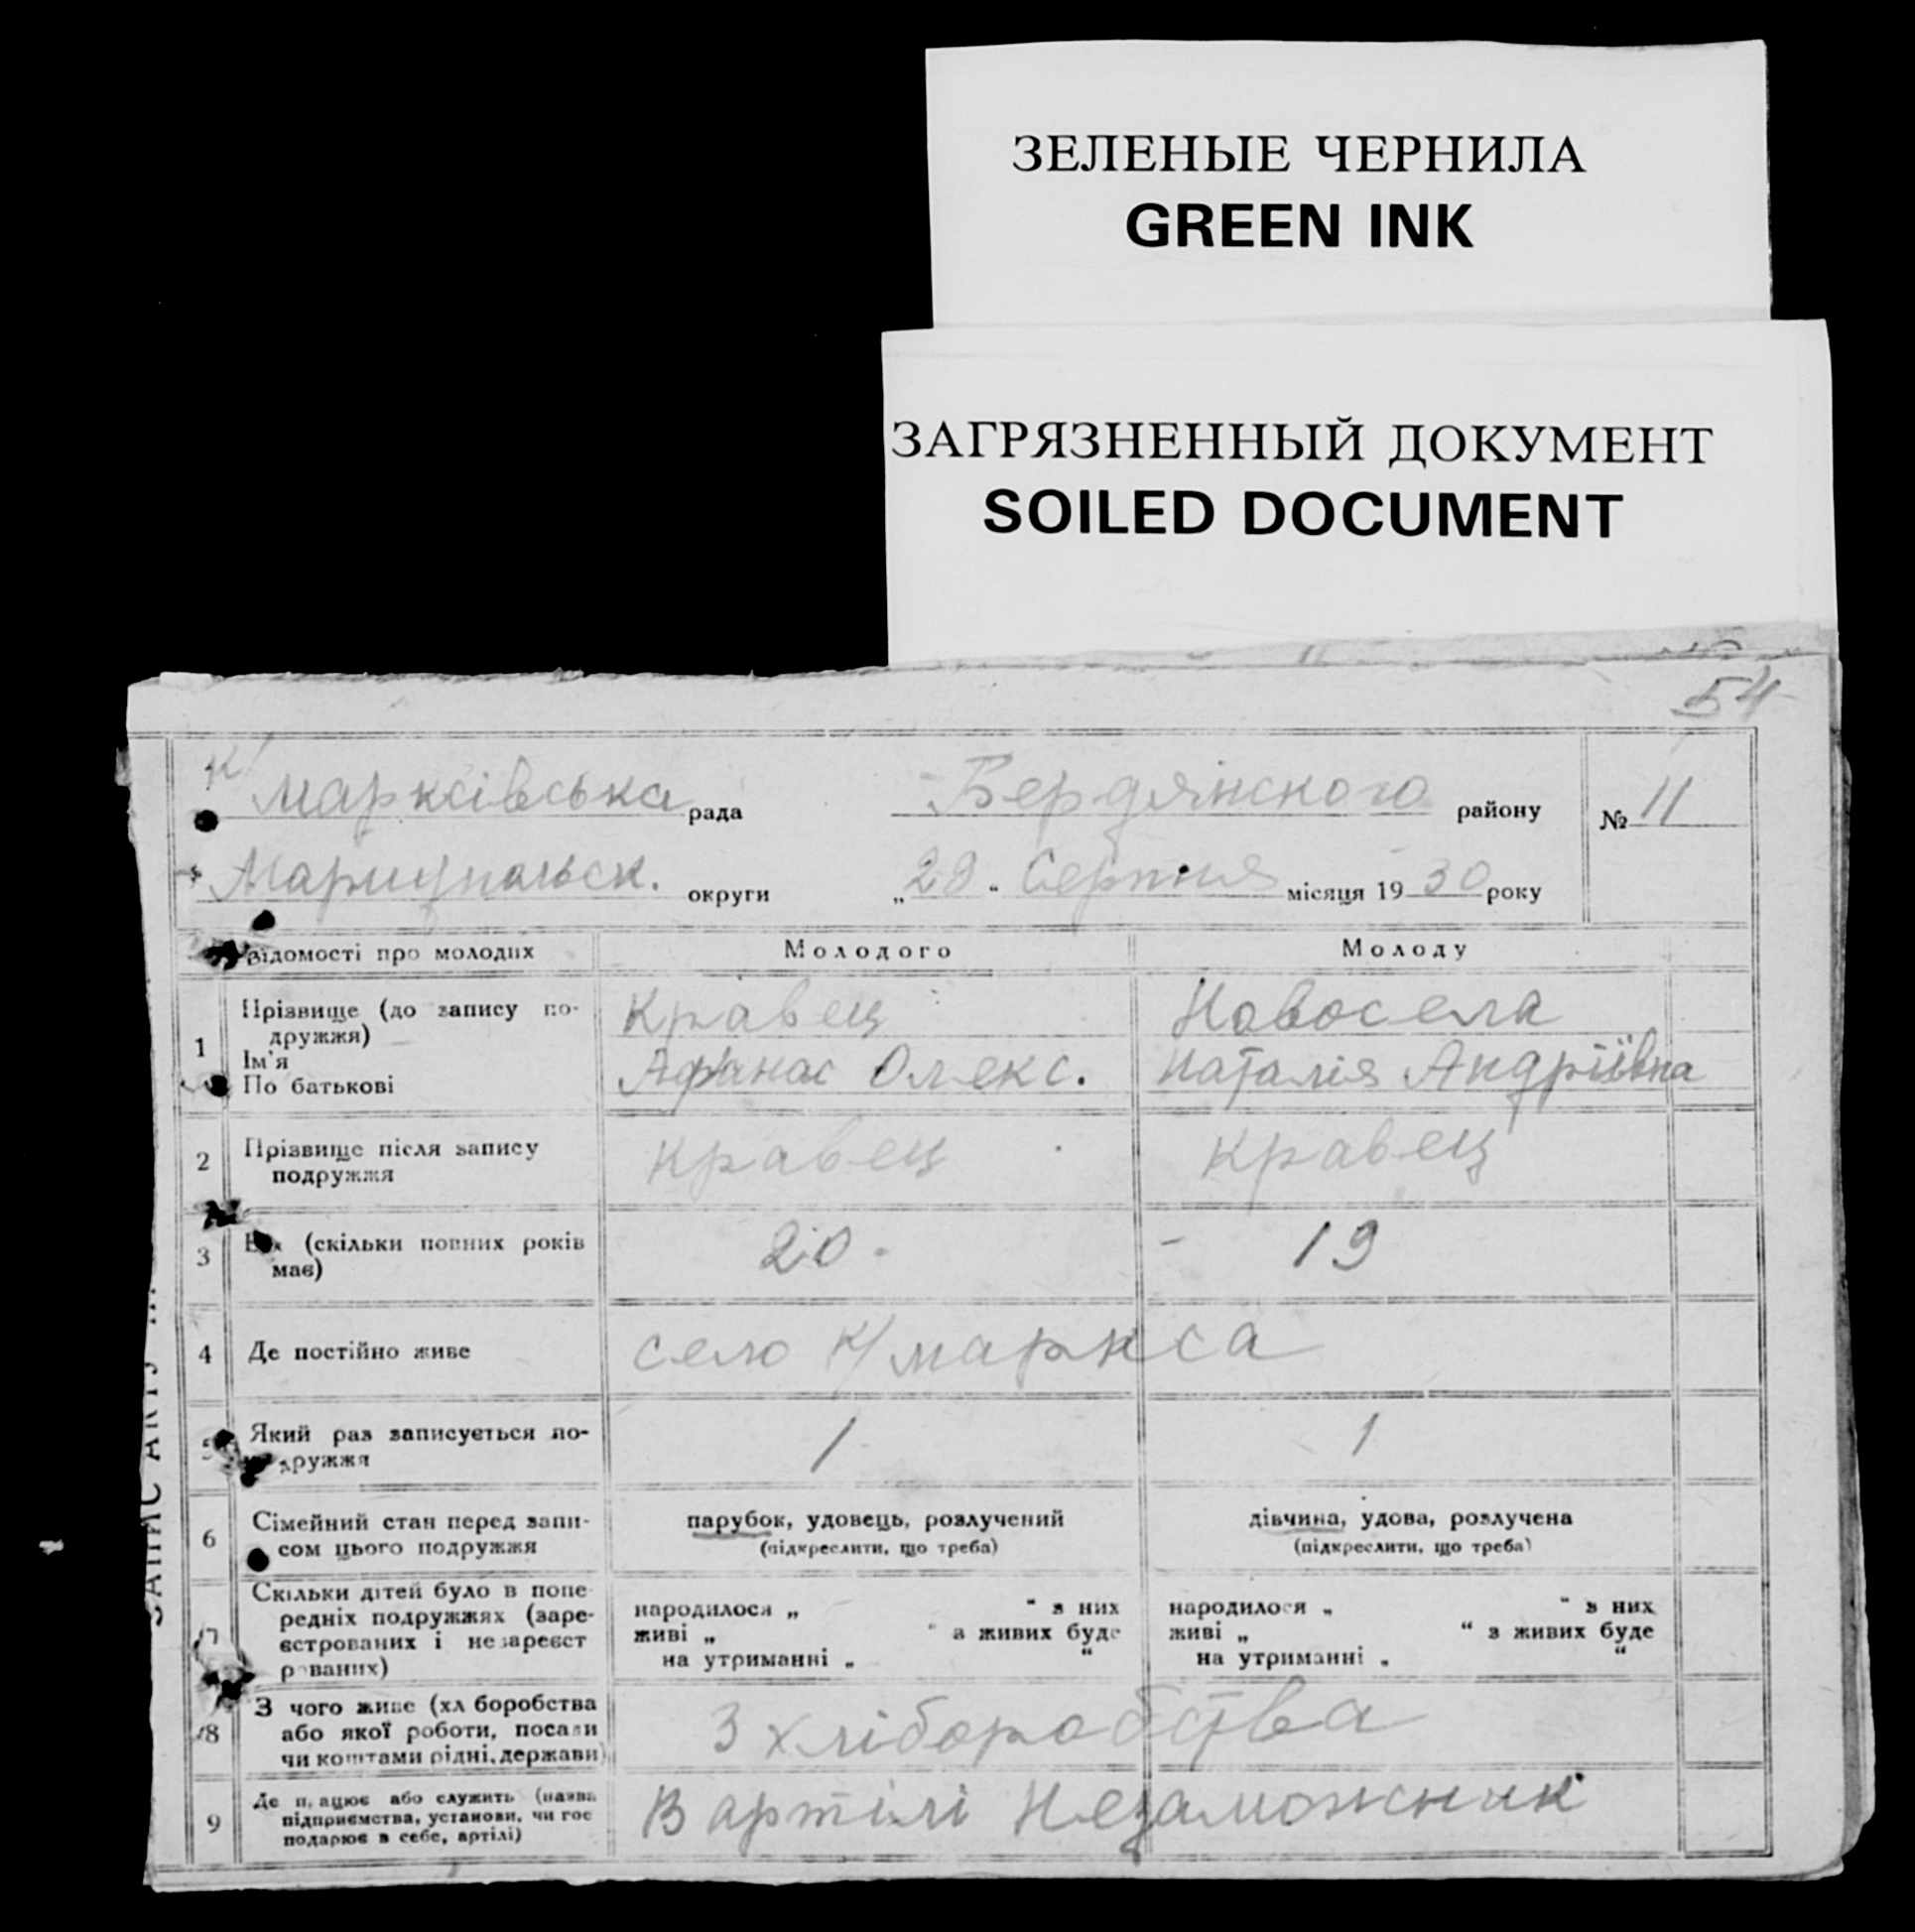 ЗЕЛЕНЫЕ ЧЕРНИЛА
GREEN INK
ЗАГРЯЗНЕННЫЙ ДОКУМЕНТ
SOILED DOCUMENT
54
К/Марксівська рада Бердянського району № 11
Маріупольськ. округи „28" Серпня місяця 1930 року
Відомості про молодих Молодого Молоду
1 Прізвище (до запису по- Кравец Новосела
дружжя)
Ім'я Афанас Олекс. Наталія Андріївна
По батькові
2 Прізвище після запису Кравец Кравец
подружжя
3 Вік (скільки повних років 20 - 19
має)
4 Де постійно живе село К/маркса
5 Який раз записується по- 1 1
дружжя
6 Сімейний стан перед запи- парубок, удовець, розлучений дівчина, удова, розлучена
сом цього подружжя (підкреслити, що треба) (підкреслити, що треба)
7 Скільки дітей було в попе
редніх подружжях (заре- народилося „ " з них народилося „ " з них
єстрованих і незареєст живі „ " з живих буде живі „ " з живих буде
рованих) на утриманні „ " на утриманні „ "
8 З чого живе (хліборобства З хліборобства
або якої роботи, посади
чи коштами рідні, держави)
9 Де працює або служить (назва В артілі Незаможник
підприємства, установи, чи гос
подарює в себе, артілі)
ЗАПИС АКТУ